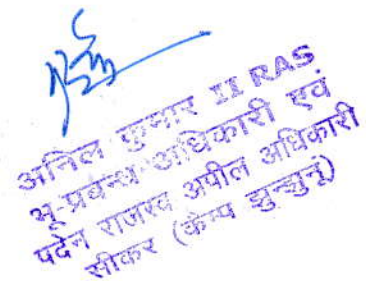 अनिल कुमार II RAS
भू प्रबन्ध अधिकारी एवं
पदेन राजस्व अपील अधिकारी
सीकर (केम्प झुन्झुनूं)